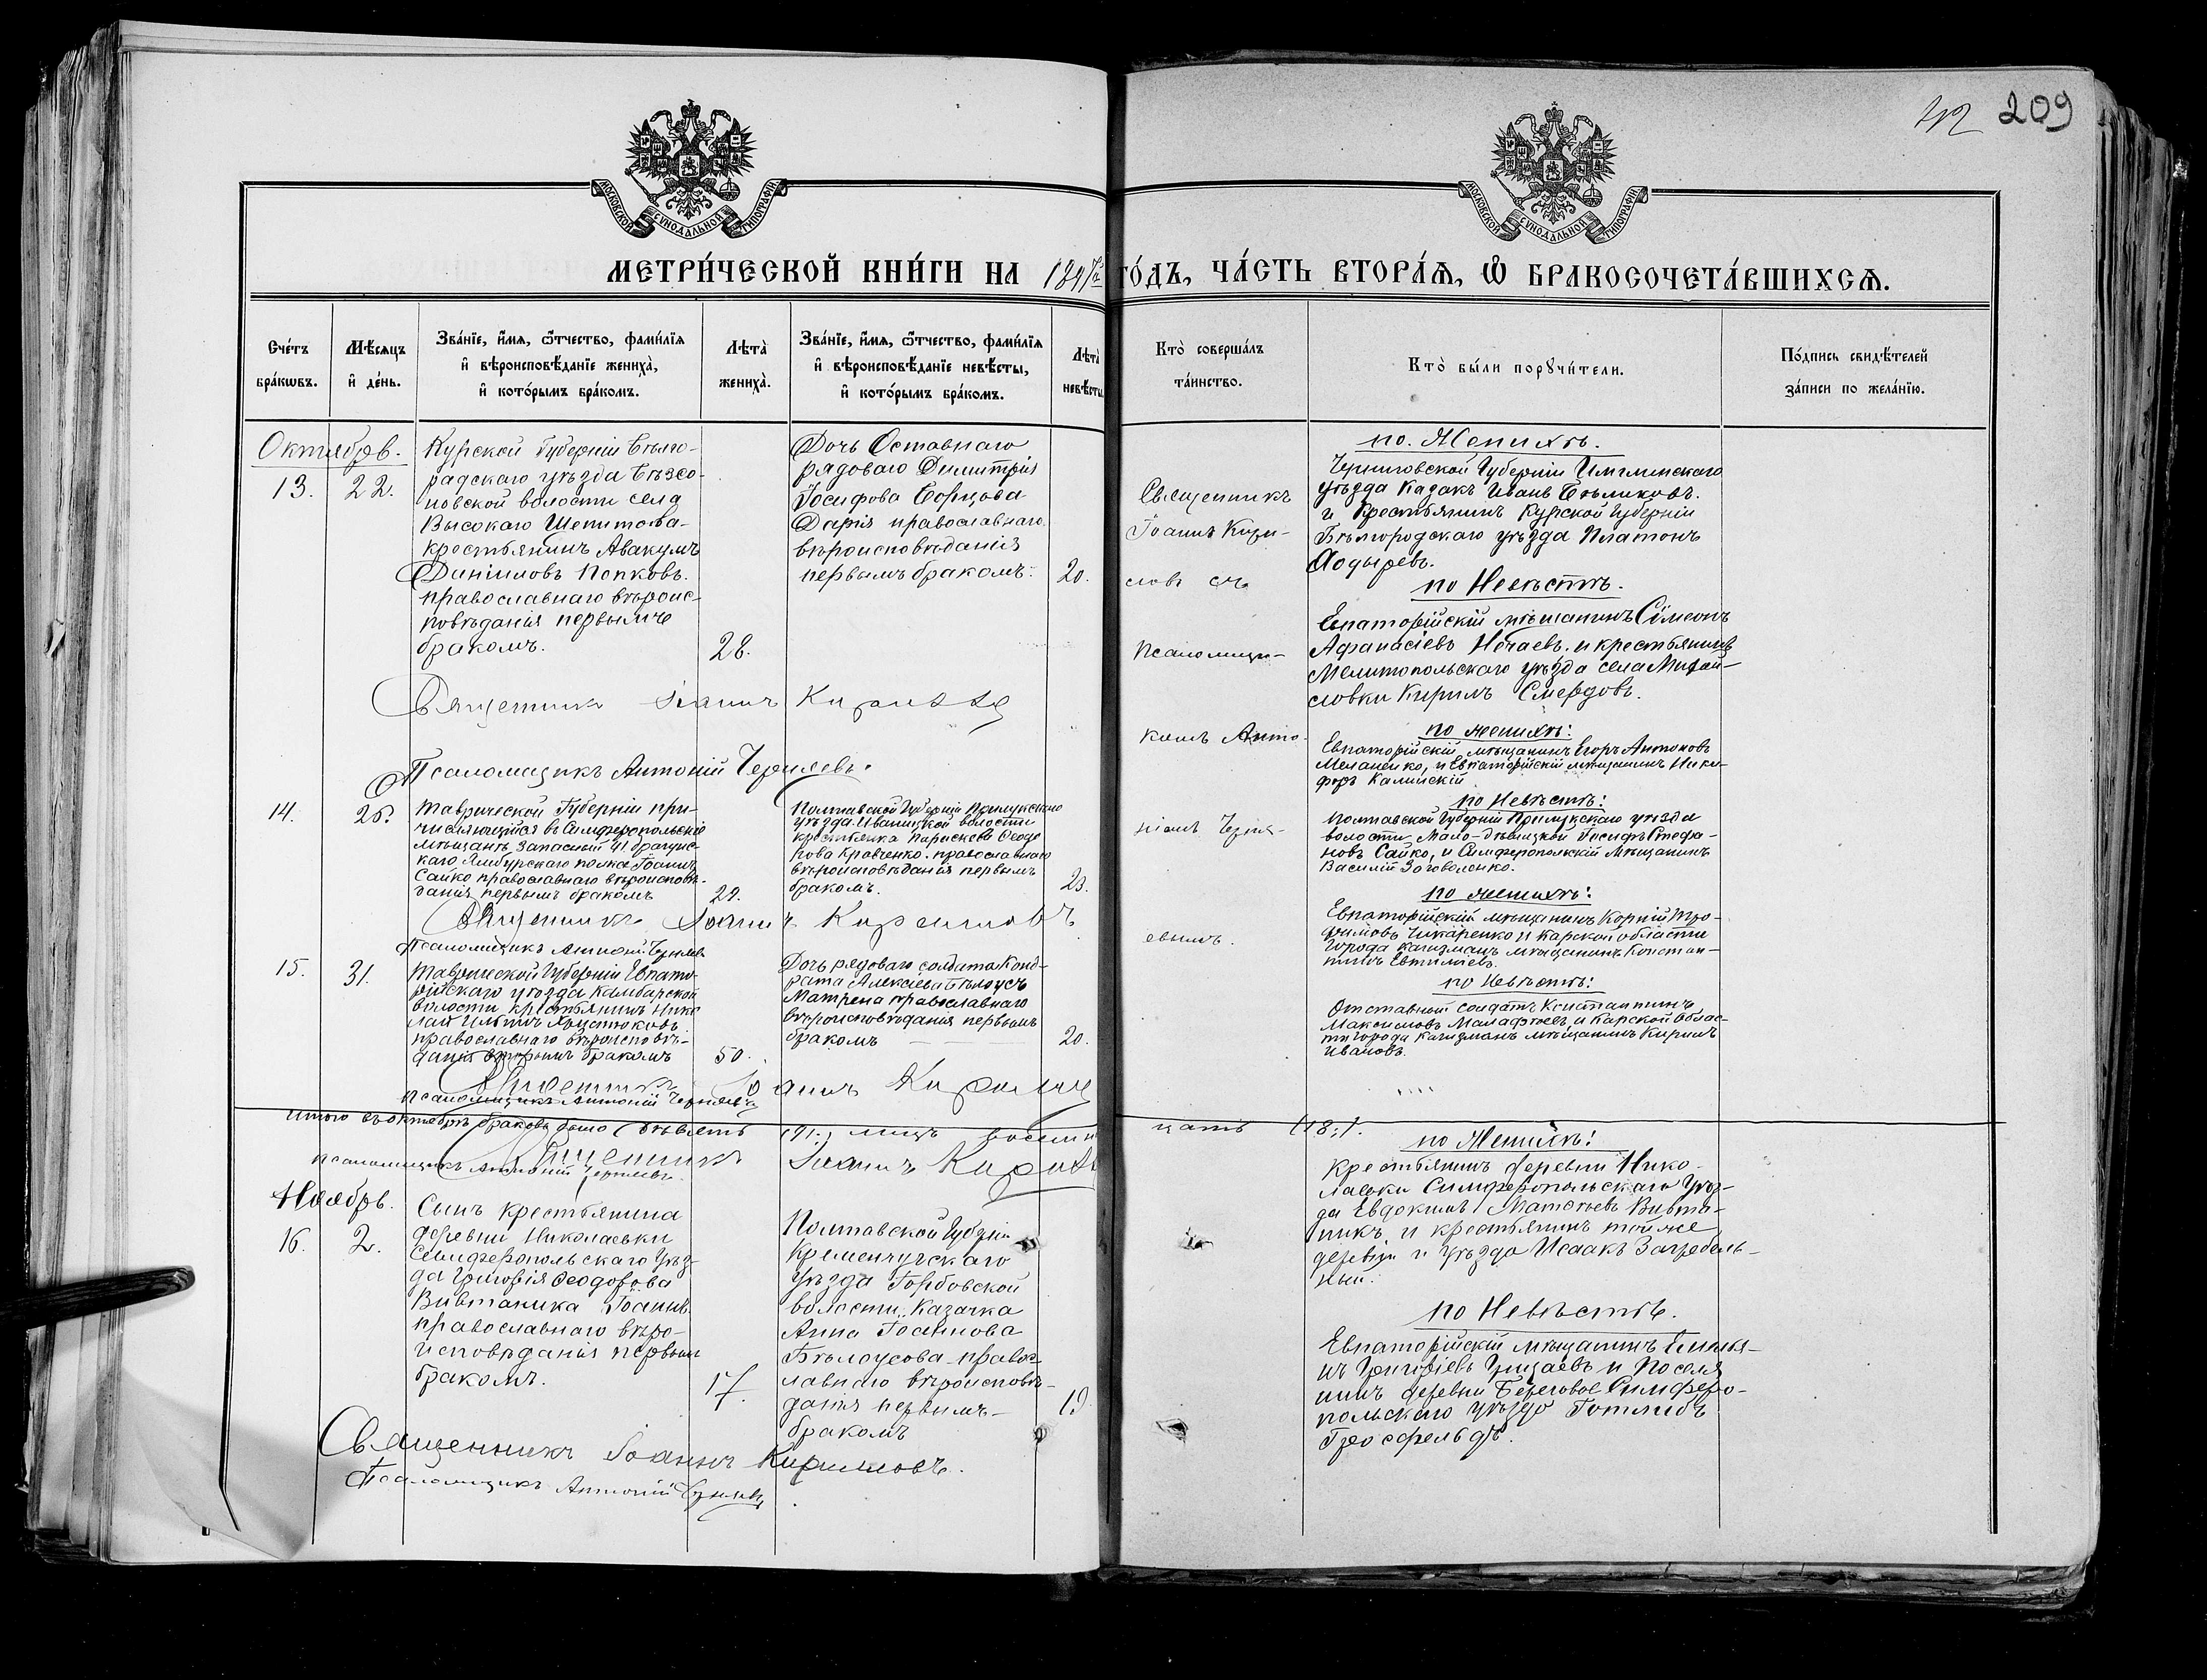 42 209
МОСКОВСКОЙ СѴНОДАЛЬНОЙ ТИПОГРАФІИ
МОСКОВСКОЙ СѴНОДАЛЬНОЙ ТИПОГРАФІИ
МЕТРИ́ЧЕСКОЙ КНИ́ГИ НА 1897 ГО́ДЪ, ЧА́СТЬ ВТОРА́Я, Ѡ БРАКОСОЧЕТА́ВШИХСЯ.
Сче́тъ бра́кѡвъ.
Мѣ́сяцъ и҆ де́нь.
Зва́нїе, и҆́мя, ѻ҆́тчество, фами́лїя
и҆ вѣроисповѣ́данїе жениха̀,
и҆ кото́рымъ бра́комъ.
Лѣта̀ жениха̀.
Зва́нїе, и҆́мя, ѻ҆́тчество, фами́лїя
и҆ вѣроисповѣ́данїе невѣ́сты,
и҆ кото́рымъ бра́комъ.
Лѣта̀ невѣ́сты
Кто̀ соверша́лъ
та́инство.
Кто̀ бы́ли порꙋчи́тели.
По́дпись свидѣ́телей
за́писи по жела́нїю.
Октябрь.
13. 22.
Курской Губерніи Бѣлго-
родскаго уѣзда Бѣзсо-
новской волости села
Высокаго
крестьянинъ Авакумъ
Даніиловъ Попковъ.
православнаго вѣроис-
повѣданія первымъ
бракомъ.
28.
Дочь Оставнаго
рядоваго Димитрія
Іосифова Борцова
Дарія православнаго
вѣроисповѣданія
первымъ бракомъ.
20.
Священникъ
Іоаннъ Кири-
ловъ съ
Псаломщи-
комъ Анто-
ніемъ Черня-
евымъ.
по Женихѣ.
Черниговской Губерніи Имглинскаго
уѣзда Казакъ Иванъ Бѣликовъ.
и Крестьянинъ Курской Губерніи
Бѣлгородскаго уѣзда Платонъ
по Невѣстѣ.
Евпаторійскій мѣщанинъ Сімеонъ
Афанасіевъ Нечаевъ. и крестьянинъ
Мелитопольскаго уѣзда села Михай-
ловки Кирилъ Смердовъ.
Священникъ Іоаннъ Кириловъ
Псаломщикъ Антоній Черняевъ.
14. 26.
Таврической Губерніи при-
числяющійся въ Симферопольскіе
мѣщане Запасный 41 драгунс-
каго Ямбургскаго полка Іоаннъ
Сайко православнаго вѣроисповѣ-
данія первымъ бракомъ
29.
Полтавской Губерніи Прилукскаго
уѣзда Иваницкой волости
крестьянка Параскева Ѳеодо
рова Кравченко. православнаго
вѣроисповѣданія первымъ
бракомъ.
23.
по женихѣ:
Евпаторійскій мѣщанинъ Егоръ Антоновъ
Меланенко, и Евпаторійскій мѣщанинъ Ники-
форъ Калинскій
по Невѣстѣ:
Полтавской Губерніи Прилукскаго уѣзда
волости Мало-Дѣвицкой Іосифъ Стефа-
новъ Сайко, и Симферопольскій Мѣщанинъ
Василій
Священникъ Іоаннъ Кириловъ
Псаломщикъ Антоній Черняевъ
15. 31.
Таврической Губерніи Евпато-
рійскаго уѣзда Камбарской
волости крестьянинъ Нико
лай Ильинъ Хрустюковъ
православнаго вѣроисповѣ-
данія вторымъ бракомъ
50.
Дочь рядоваго солдата Конд-
рата Алексѣева Бѣлоусъ
Матрена православнаго
вѣроисповѣданія первымъ
бракомъ
20.
по женихѣ:
Евпаторійскій мѣщанинъ Корній Тро-
фимовъ Чикаренко и Карской области
города Кагызманъ мѣщанинъ Констан-
тинъ Евтиліевъ.
по Невѣстѣ:
Отставной солдатъ Константинъ
Максимовъ Малафѣевъ и Карской Облас-
ти города Кагызманъ мѣщанинъ Кирилъ
Ивановъ.
Священникъ Іоаннъ Кириловъ
Псаломщикъ Антоній Черняевъ
итого въ октябрѣ браковъ было девять (9). лицъ восемнадцать (18).
Священникъ Іоаннъ Кирилов
Псаломщикъ Антоній Черняевъ.
Ноябрь.
16. 2.
Сынъ крестьянина
деревни Николаевки
Симферопольскаго Уѣз-
да Григорія Ѳеодорова
Вивтаника Іоаннъ
православнаго вѣро-
исповѣданія первымъ
бракомъ.
17.
Полтавской Губерніи
Кременчугскаго
Уѣзда Горбовской
волости Казачка
Анна Іоаннова
Бѣлоусова правос-
лавнаго вѣроисповѣ-
данія первымъ
бракомъ
19.
по Женихѣ:
Крестьянинъ деревни Нико-
лаевки Симферопольскаго Уѣз-
да Евдокимъ Матѳѣевъ Вивта-
никъ, и крестьянинъ той же
деревни и Уѣзда Исаакъ Загребель-
ный.
по Невѣстѣ.
Евпаторійскій мѣщанинъ Емилья-
нъ Григорьевъ Грицаевъ и Поселя
нинъ деревни Береговое Симферо-
польскаго Уѣзда Готлибъ
Священникъ Іоаннъ Кириловъ.
Псаломщикъ Антоній Черняевъ